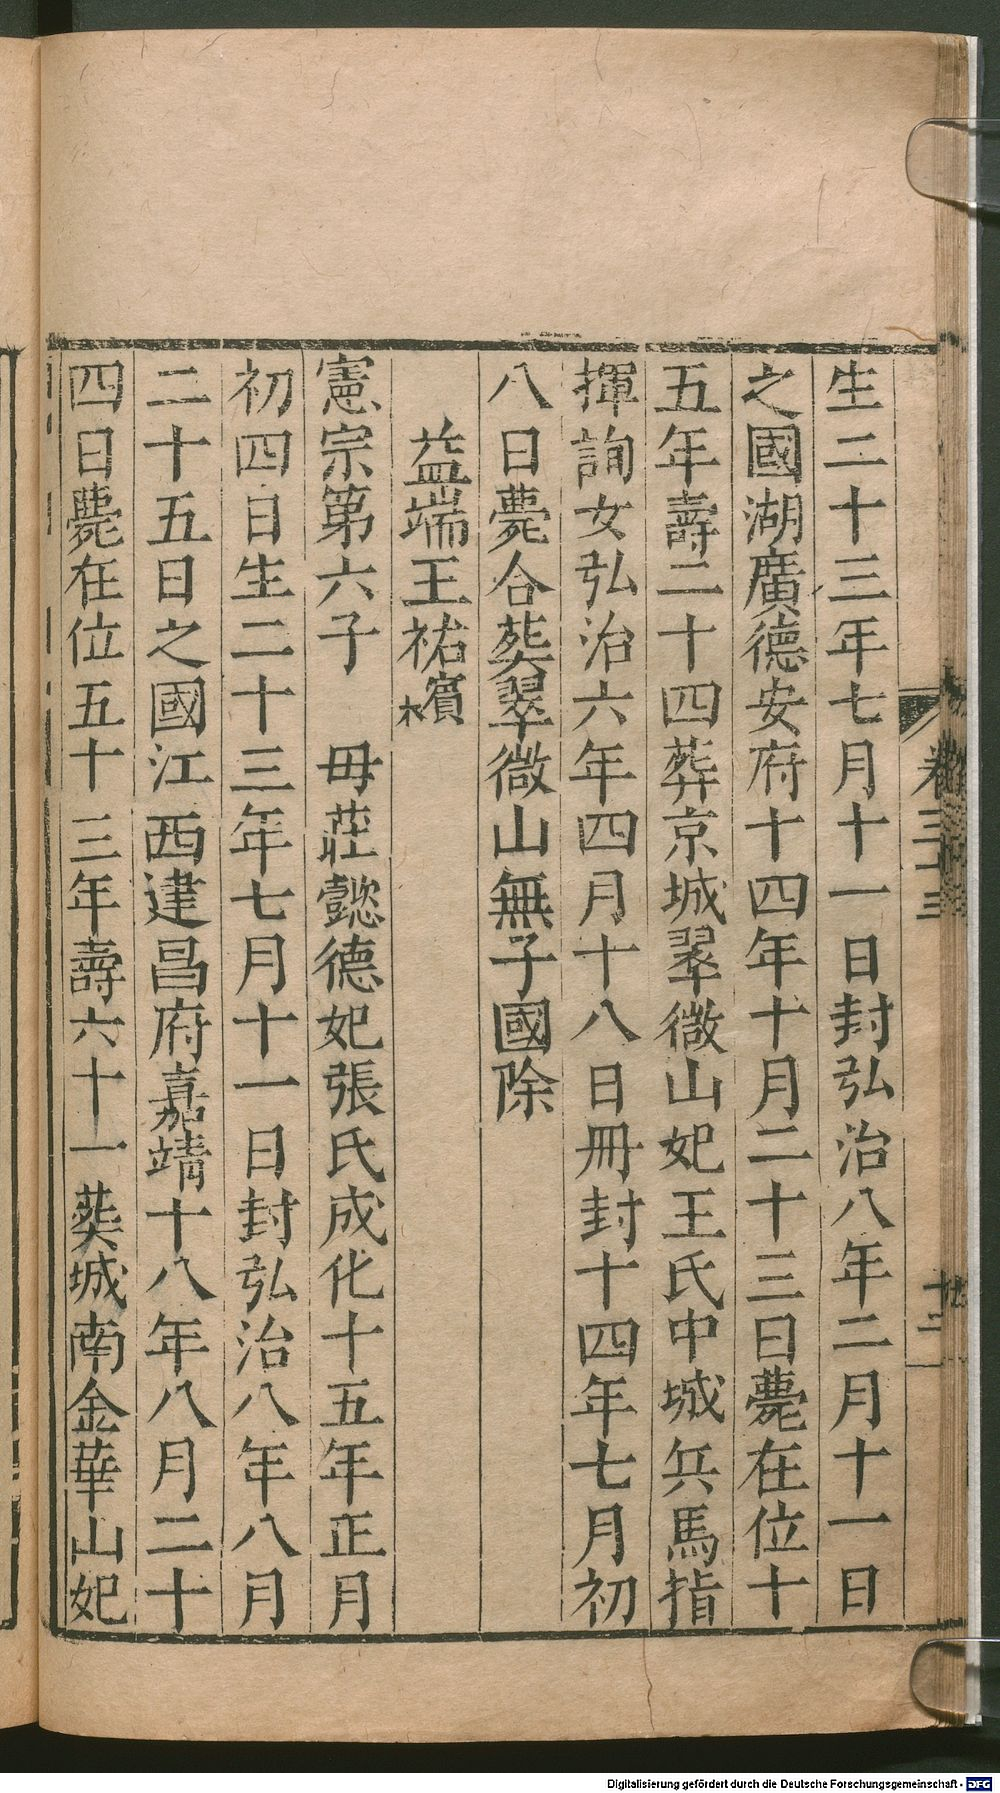 卷三十三
十二
生二十三年七月十一日封弘治八年二月十一日
之國湖廣德安府十四年十月二十三日薨在位十
五年壽二十四葬京城翠微山妃王氏中城兵馬指
揮詢女弘治六年四月十八日冊封十四年七月初
八日薨合葬翠微山無子國除
益端王祐檳
憲宗第六子 母莊懿德妃張氏成化十五年正月
初四日生二十三年七月十一日封弘治八年八月
二十五日之國江西建昌府嘉靖十八年八月二十
四日薨在位五十三年壽六十一葬城南金華山妃
Digitalisierung gefördert durch die Deutsche Forschungsgemeinschaft - DFG